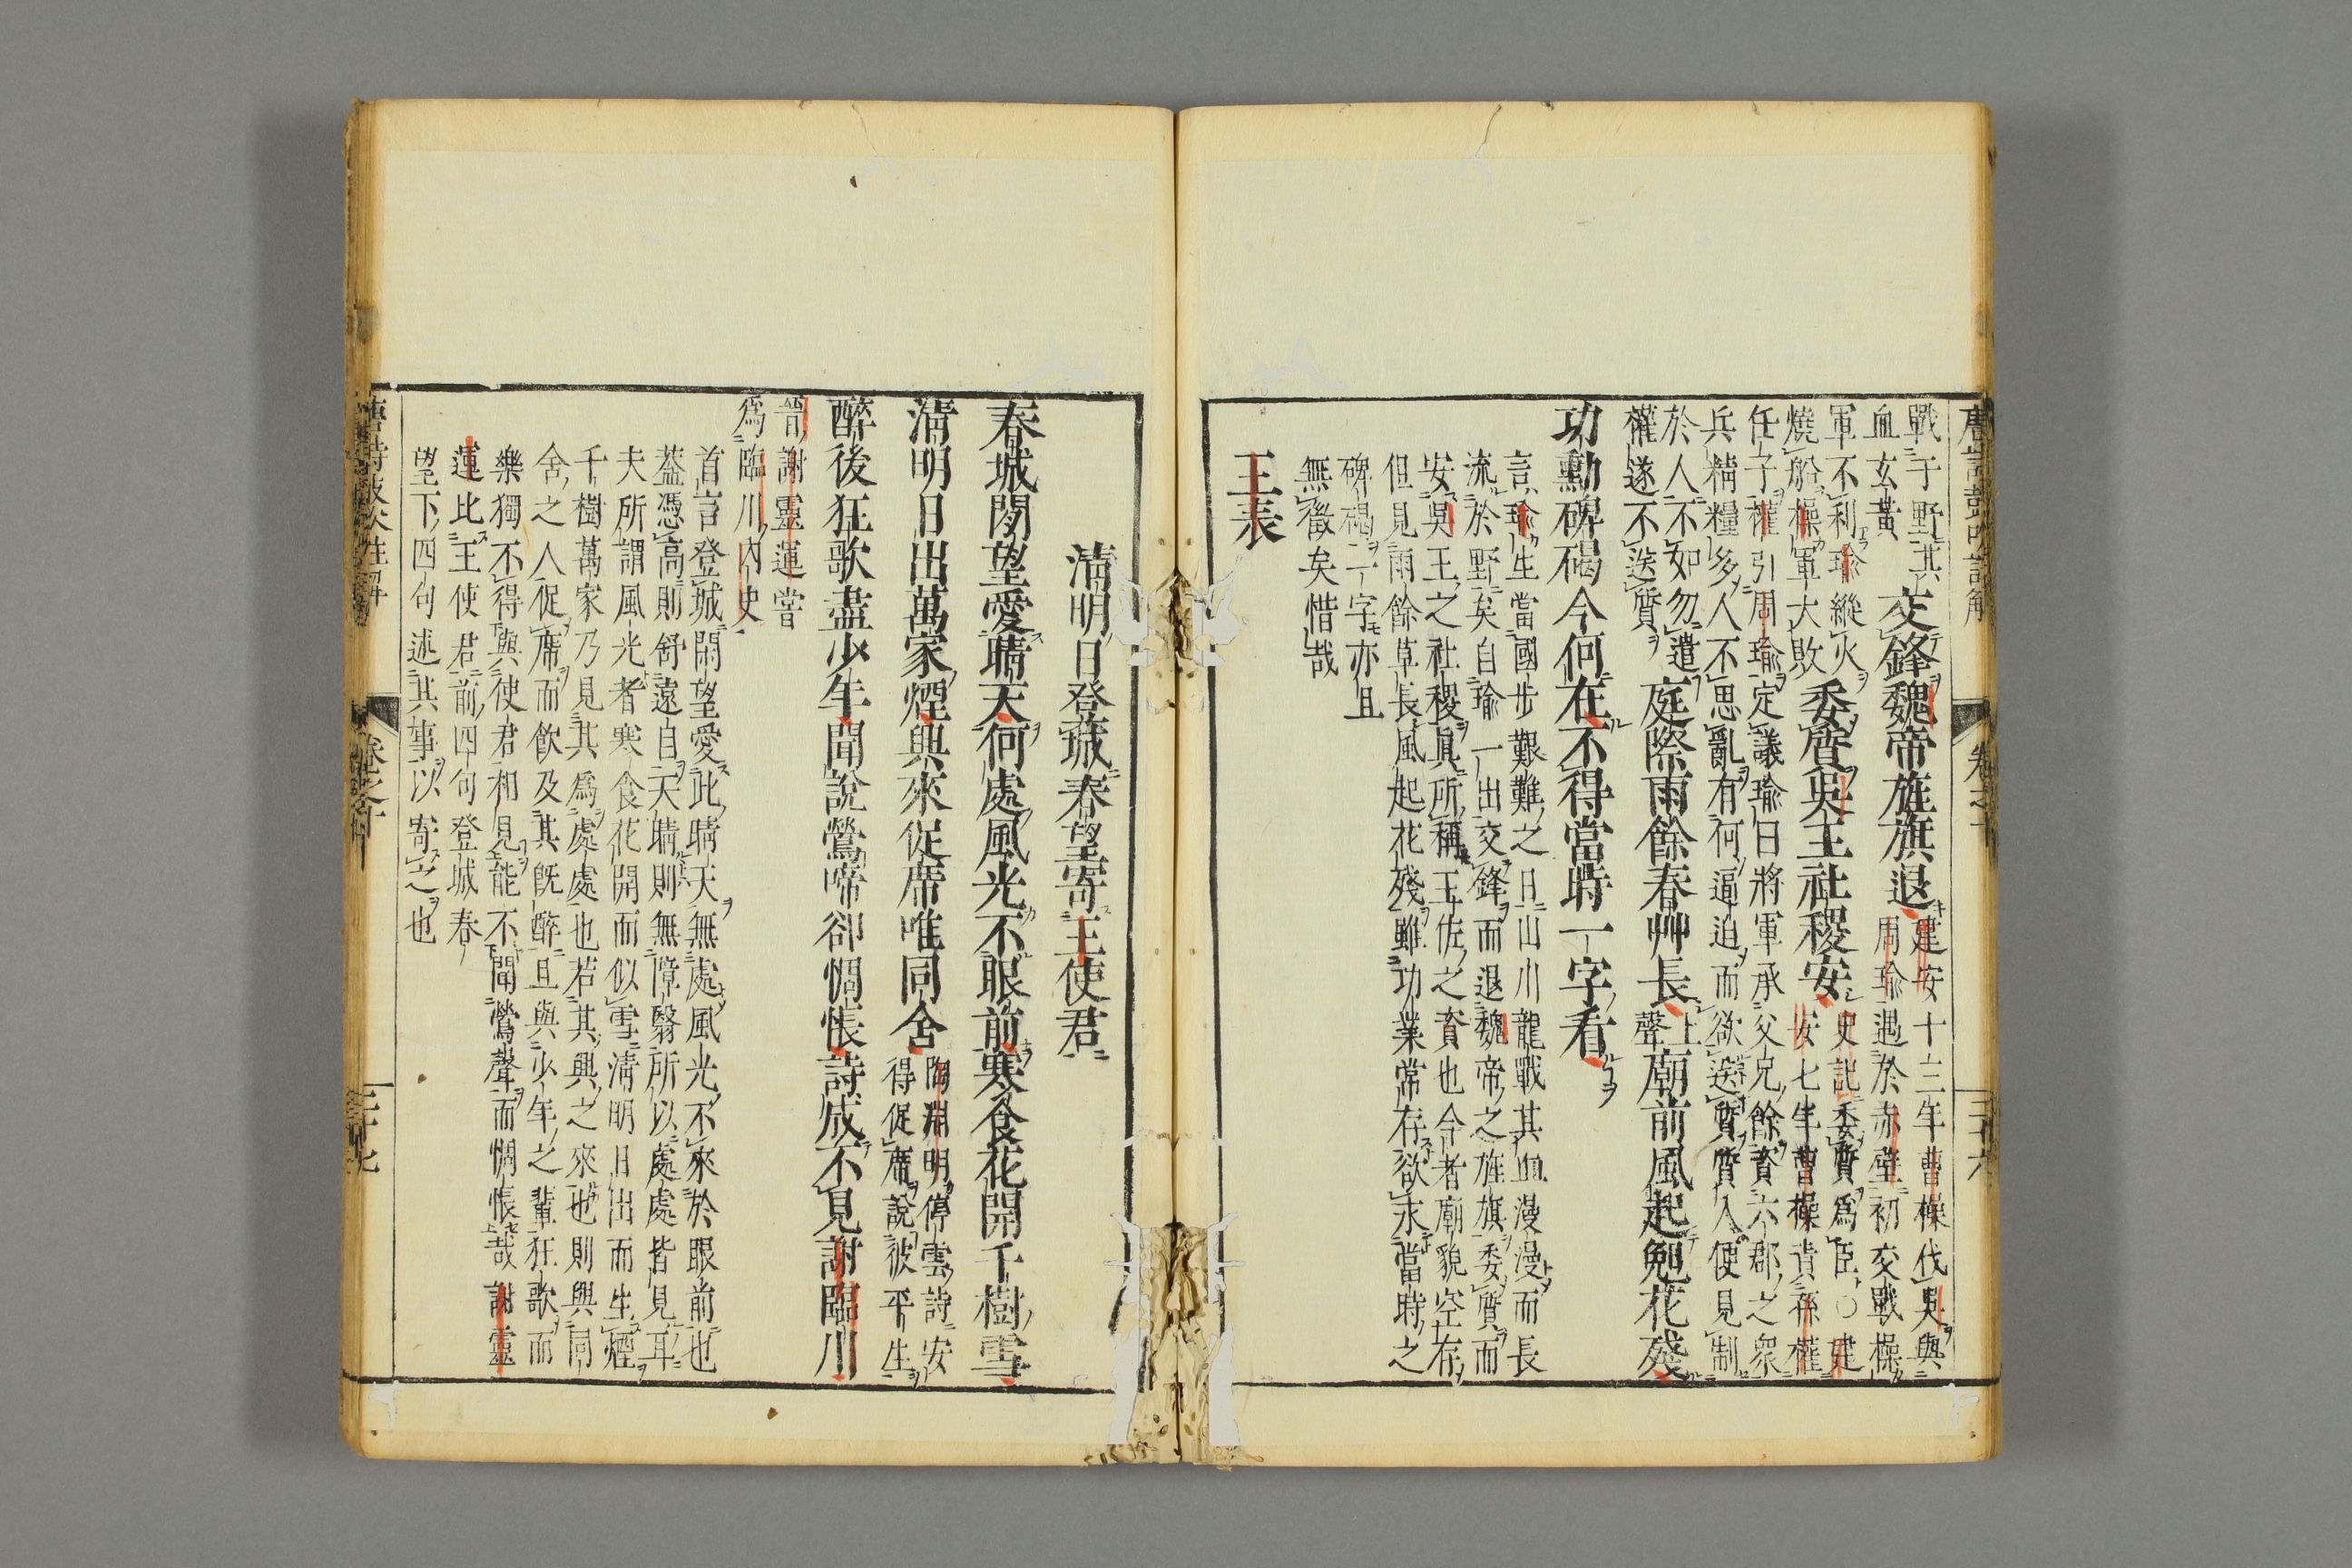 戰于野其
血玄黃
交鋒魏帝旌旗退
建安十三年曹操伐吳與
周瑜遇於赤壁初交戰操
軍不利瑜縱火
燒船操軍大敗
委質吳王社稷安
史記委質爲臣○建
安七年曹操責孫權
任子權引周瑜定議瑜曰將軍承父兄餘資六郡之衆
兵精糧多人不思亂有何逼迫而欲送質質入便見制
於人不如勿遣
權遂不送質
庭際雨餘春艸長
上聲
廟前風起晚花殘
功勳碑碣今何在不得當時一字看
言瑜生當國步艱難之日山川龍戰其血漫漫而長
流於野矣自瑜一出交鋒而退魏帝之旌旗委質而
安吳王之社稷眞所稱王佐之資也今者廟貌空存
但見雨餘草長風起花殘雖功業常存欲求當時之
碑碣一字亦且
無徵矣惜哉
王表
清明日登城春望寄王使君
春城閑望愛晴天何處風光不眼前寒食花開千樹雪
清明日出萬家煙與來促席唯同舍
陶淵明停雲詩安
得促席說彼平生
醉後狂歌盡少年聞說鶯啼卻惆悵詩成不見謝臨川
晉謝靈運嘗
爲臨川內史
首言登城閑望愛此晴天無處風光不來於眼前也
葢憑高則舒遠自天晴則無障翳所以處處皆見耳
夫所謂風光者寒食花開而似雪清明日出而生煙
千樹萬家乃見其爲處處也若其興之來也則與同
舍之人促席而飮及其旣醉且與少年之輩狂歌而
樂獨不得與使君相見能不聞鶯聲而惆悵哉謝靈
運比王使君前四句登城春
望下四句述其事以寄之也
卷之十
三十七
卷之十
三十六